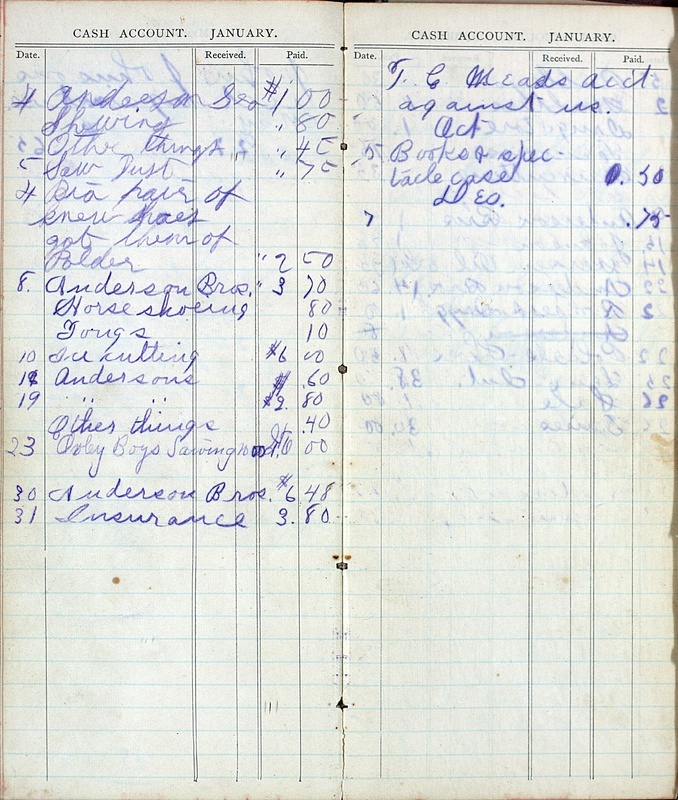 CASH ACCOUNT. JANUARY.
Date. Received. Paid.
4 Anderson $1 00
Shewing " 80
Other things " 45
5 Saw Dust " 75
4 pair of
knew
got them of
Polder " 2 50
8. Anderson Bros. " 3 70
Horse shoeing 80
Tongs 10
10 Ice cutting $6 00
18 Andersons .60
19 " " $2. 80
Other things .40
23 Oxley Boys Sawing wood 00
30 Anderson Bros. $6 48
31 Insurance 3. 80
CASH ACCOUNT. JANUARY.
Date. Received. Paid.
T. C. Meads acct
against us.
Oct
5 Books & spec-
tacle case 0. 50
DES.
7 .75